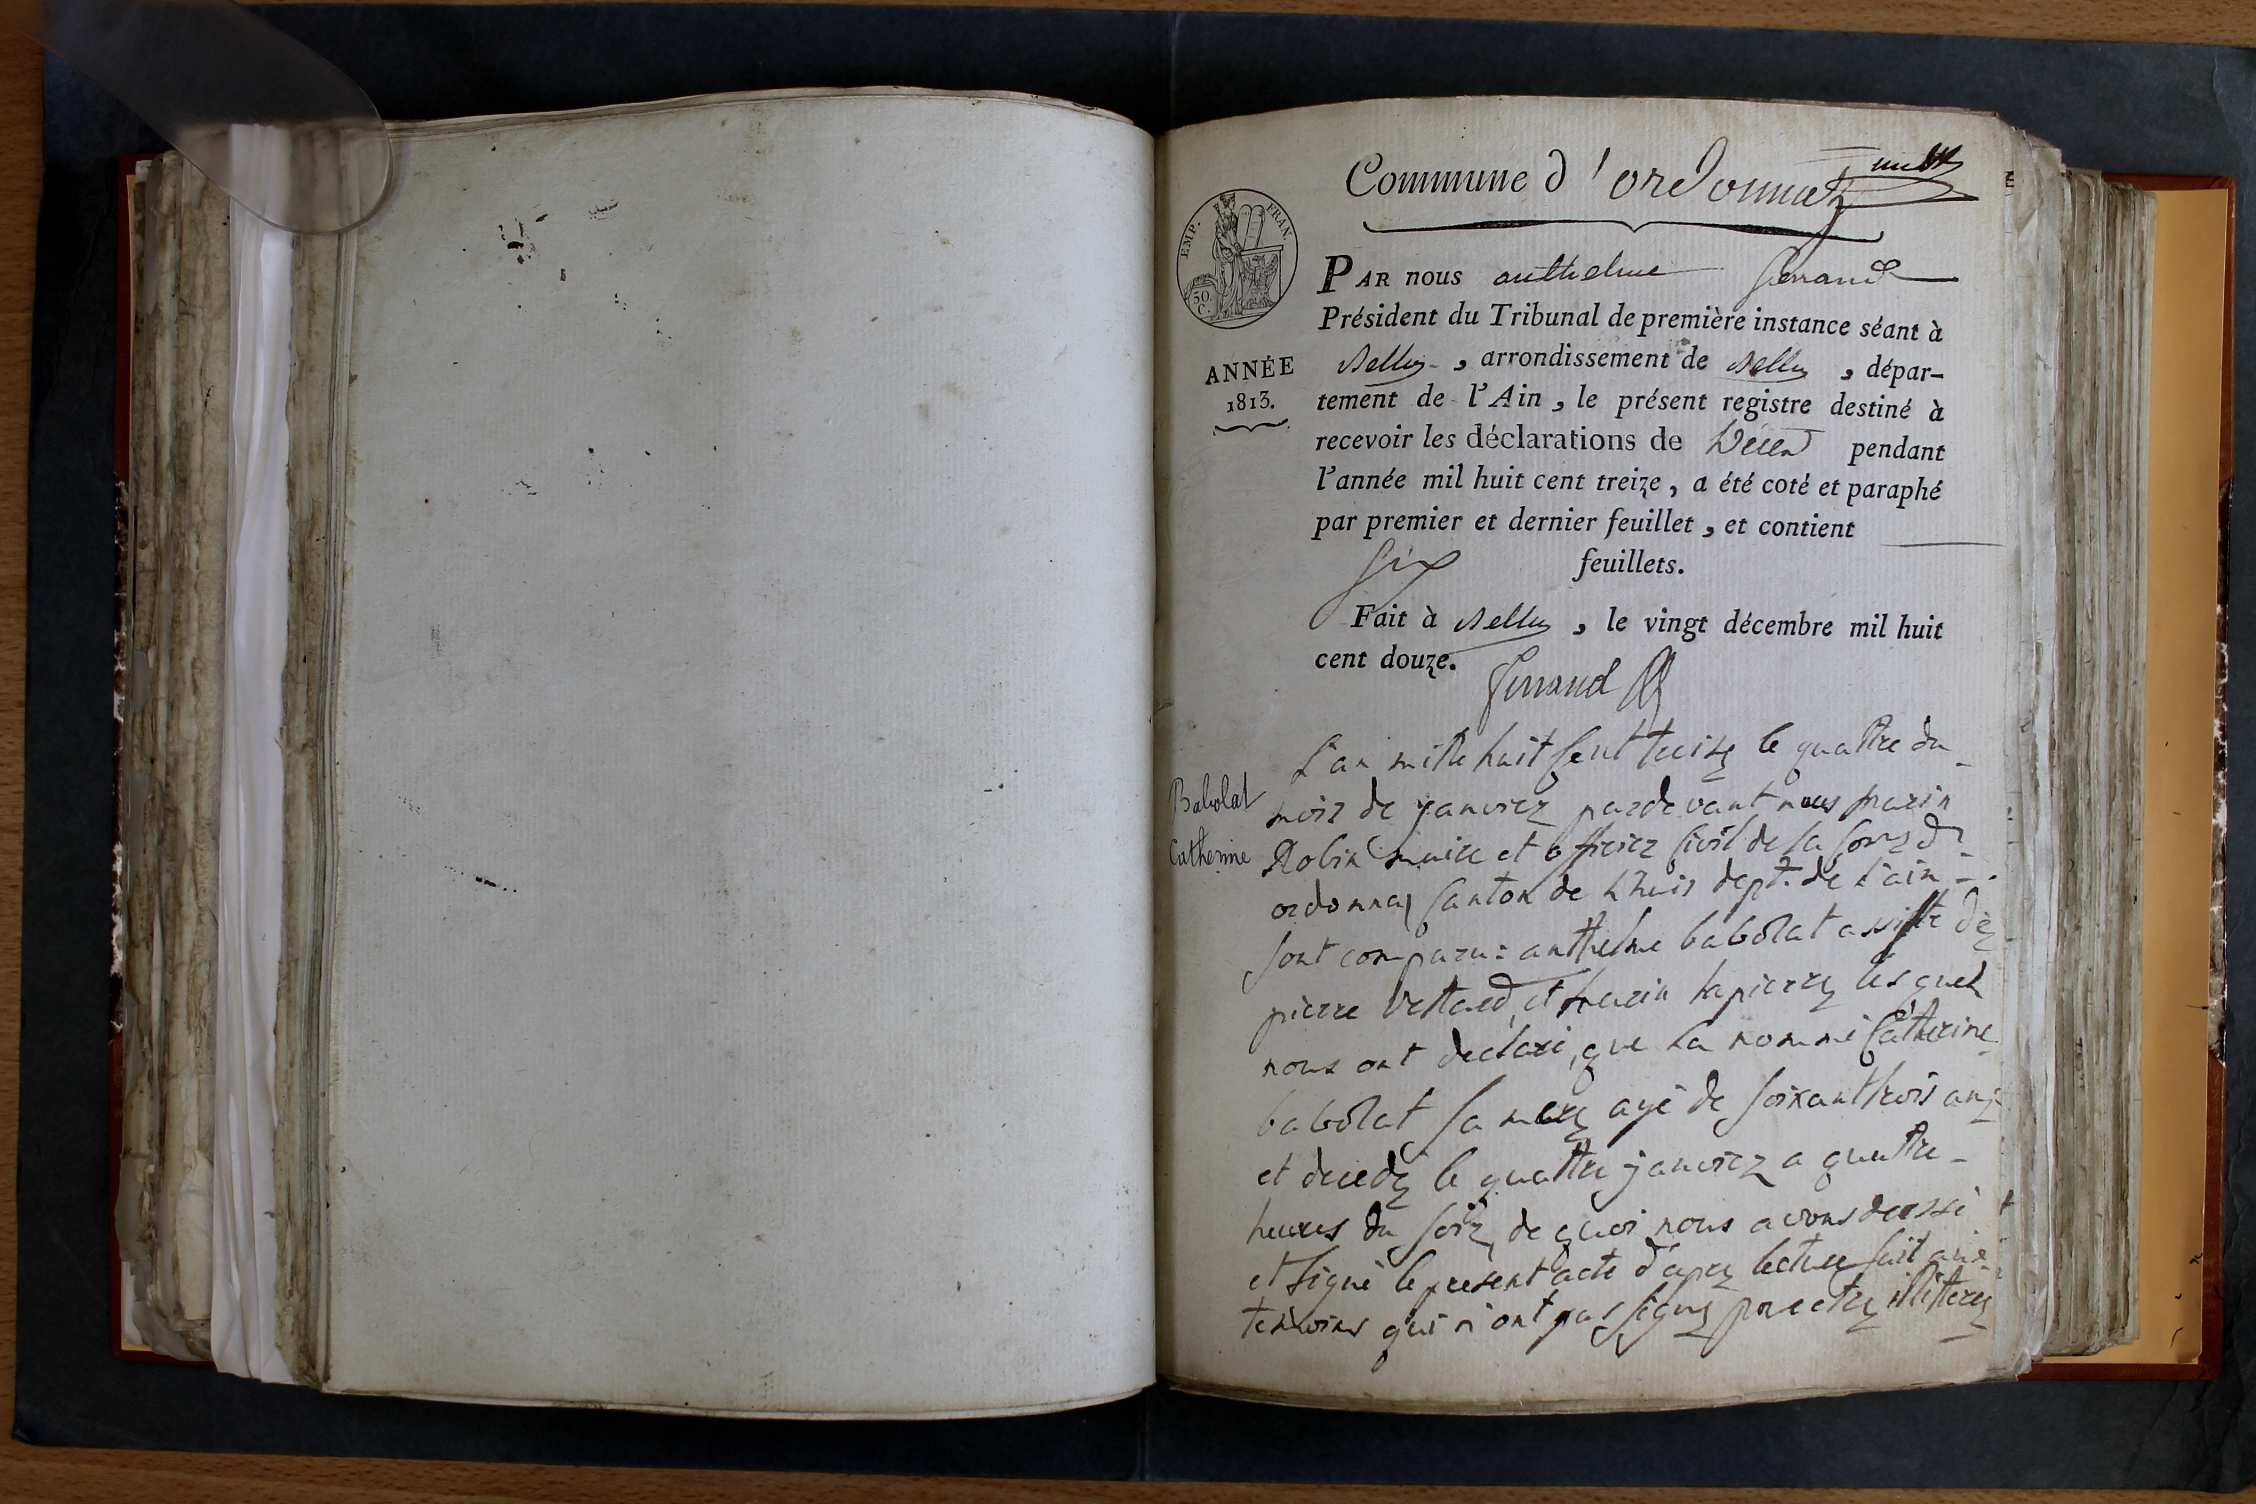 Commune d'ordonnaz
EMP. FRAN.
50.
C.
PAR nous anthelme ferrand
Président du Tribunal de première instance séant à
Belley, arrondissement de Belley, dépar-
ANNÉE
1813.
tement de l'Ain, le présent registre destiné à
recevoir les déclarations de Décès pendant
l'année mil huit cent treize, a été coté et paraphé
par premier et dernier feuillet, et contient
six feuillets.
Fait à Belley, le vingt décembre mil huit
cent douze.
ferrand
Babolat
Catherine
L'an mille huit sent treize le quattre du
mois de janvier pardevant nous marin
Robin maire et officier civil de la d'
ordonnaz canton de L'huis dept. de L'ain
sont comparu: anthelme babolat assisté de
pierre et marin lapierre lesquels
nous ont déclaré, que La nommé Catherine
babolat sa mere agé de soixanttrois ans
et decedé le quattre janvier a quattre
heures du soir, de quoi nous avons dressé
et signé le present acte d'apres lecture fait aux
temoins qui n'ont pas signé pour etre illitteré